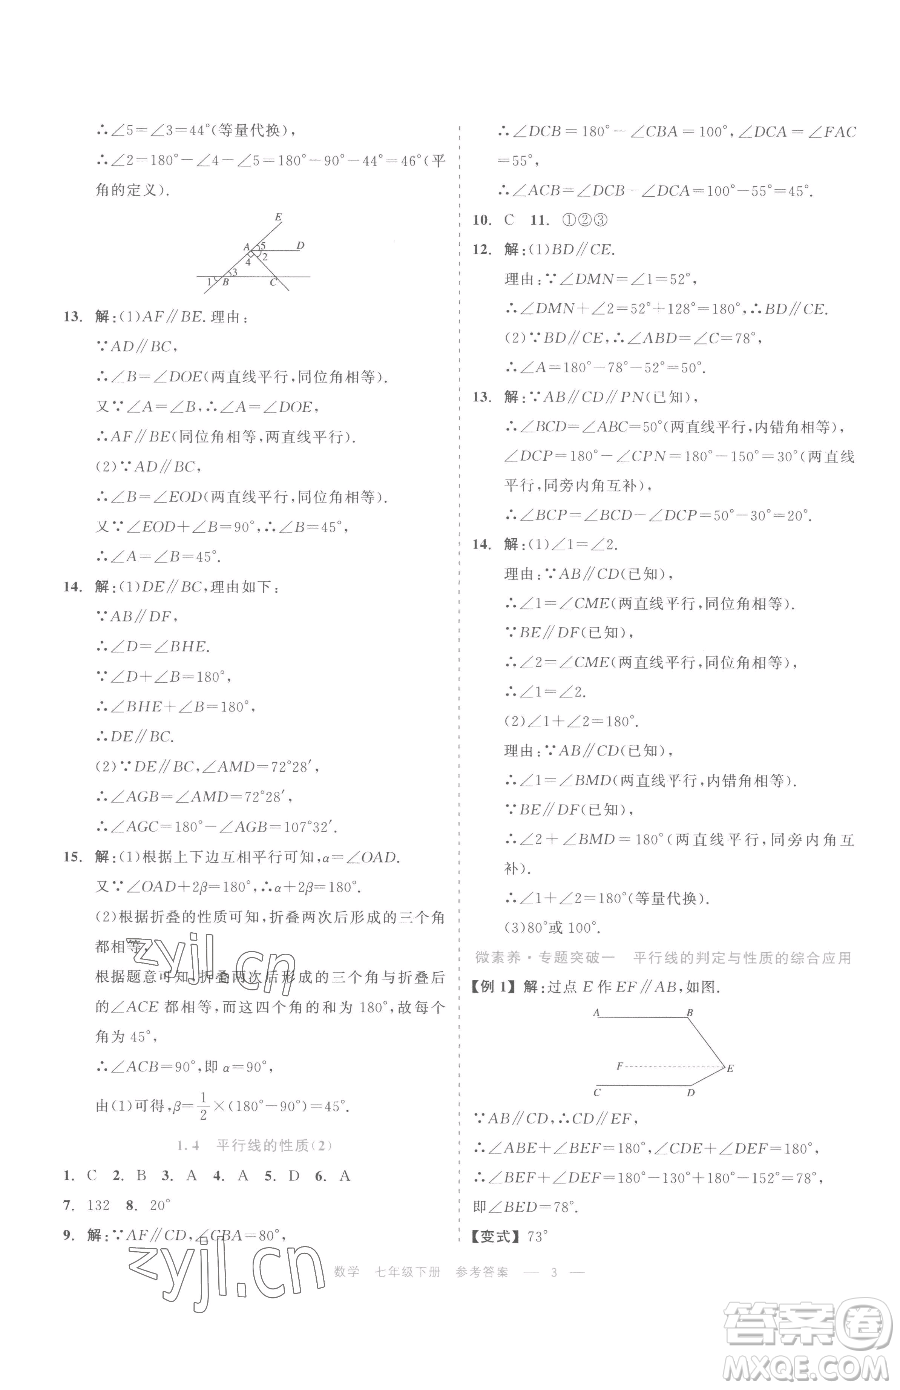 ∴∠5=∠3=44°(等量代换),
∴∠2=180°-∠4-∠5=180°-90°-44°=46°(平
角的定义).
E
A 5 D
4 2
1 3
B C
13. 解:(1)AF∥BE.理由:
∵AD∥BC,
∴∠B=∠DOE(两直线平行,同位角相等).
又∵∠A=∠B,∴∠A=∠DOE,
∴AF∥BE(同位角相等,两直线平行).
(2)∵AD∥BC,
∴∠B=∠EOD(两直线平行,同位角相等).
又∵∠EOD+∠B=90°,∴∠B=45°,
∴∠A=∠B=45°.
14. 解:(1)DE∥BC,理由如下:
∵AB∥DF,
∴∠D=∠BHE.
∵∠D+∠B=180°,
∴∠BHE+∠B=180°,
∴DE∥BC.
(2)∵DE∥BC,∠AMD=72°28′,
∴∠AGB=∠AMD=72°28′,
∴∠AGC=180°-∠AGB=107°32′.
15. 解:(1)根据上下边互相平行可知,α=∠OAD.
又∵∠OAD+2β=180°,∴α+2β=180°.
(2)根据折叠的性质可知,折叠两次后形成的三个角
都相等,
根据题意可知,折叠两次后形成的三个角与折叠前
的∠ACE都相等,而这四个角的和为180°,故每个
角为45°,
∴∠ACB=90°,即α=90°,
由(1)可得,β=1/2×(180°-90°)=45°.
1.4 平行线的性质(2)
1. C 2. B 3. A 4. A 5. D 6. A
7. 132 8. 20°
9. 解:∵AF∥CD,∠CBA=80°,
∴∠DCB=180°-∠CBA=100°,∠DCA=∠FAC
=55°,
∴∠ACB=∠DCB-∠DCA=100°-55°=45°.
10. C 11. ①②③
12. 解:(1)BD∥CE.
理由:∵∠DMN=∠1=52°,
∴∠DMN+∠2=52°+128°=180°,∴BD∥CE.
(2)∵BD∥CE,∴∠ABD=∠C=78°,
∴∠A=180°-78°-52°=50°.
13. 解:∵AB∥CD∥PN(已知),
∴∠BCD=∠ABC=50°(两直线平行,内错角相等),
∠DCP=180°-∠CPN=180°-150°=30°(两直线
平行,同旁内角互补),
∴∠BCP=∠BCD-∠DCP=50°-30°=20°.
14. 解:(1)∠1=∠2.
理由:∵AB∥CD(已知),
∴∠1=∠CME(两直线平行,同位角相等).
∵BE∥DF(已知),
∴∠2=∠CME(两直线平行,同位角相等),
∴∠1=∠2.
(2)∠1+∠2=180°.
理由:∵AB∥CD(已知),
∴∠1=∠BMD(两直线平行,内错角相等).
∵BE∥DF(已知),
∴∠2+∠BMD=180°(两直线平行,同旁内角互
补),
∴∠1+∠2=180°(等量代换).
(3)80°或100°.
微素养·专题突破一 平行线的判定与性质的综合应用
【例1】解:过点E作EF∥AB,如图.
A B
F E
C D
∵AB∥CD,∴CD∥EF,
∴∠ABE+∠BEF=180°,∠CDE+∠DEF=180°,
∴∠BEF+∠DEF=180°-130°+180°-152°=78°,
即∠BED=78°.
【变式】73°
数学 七年级下册 参考答案 — 3 —
zyjl.cn
zyjl.cn
答案圈
MXQE.COM